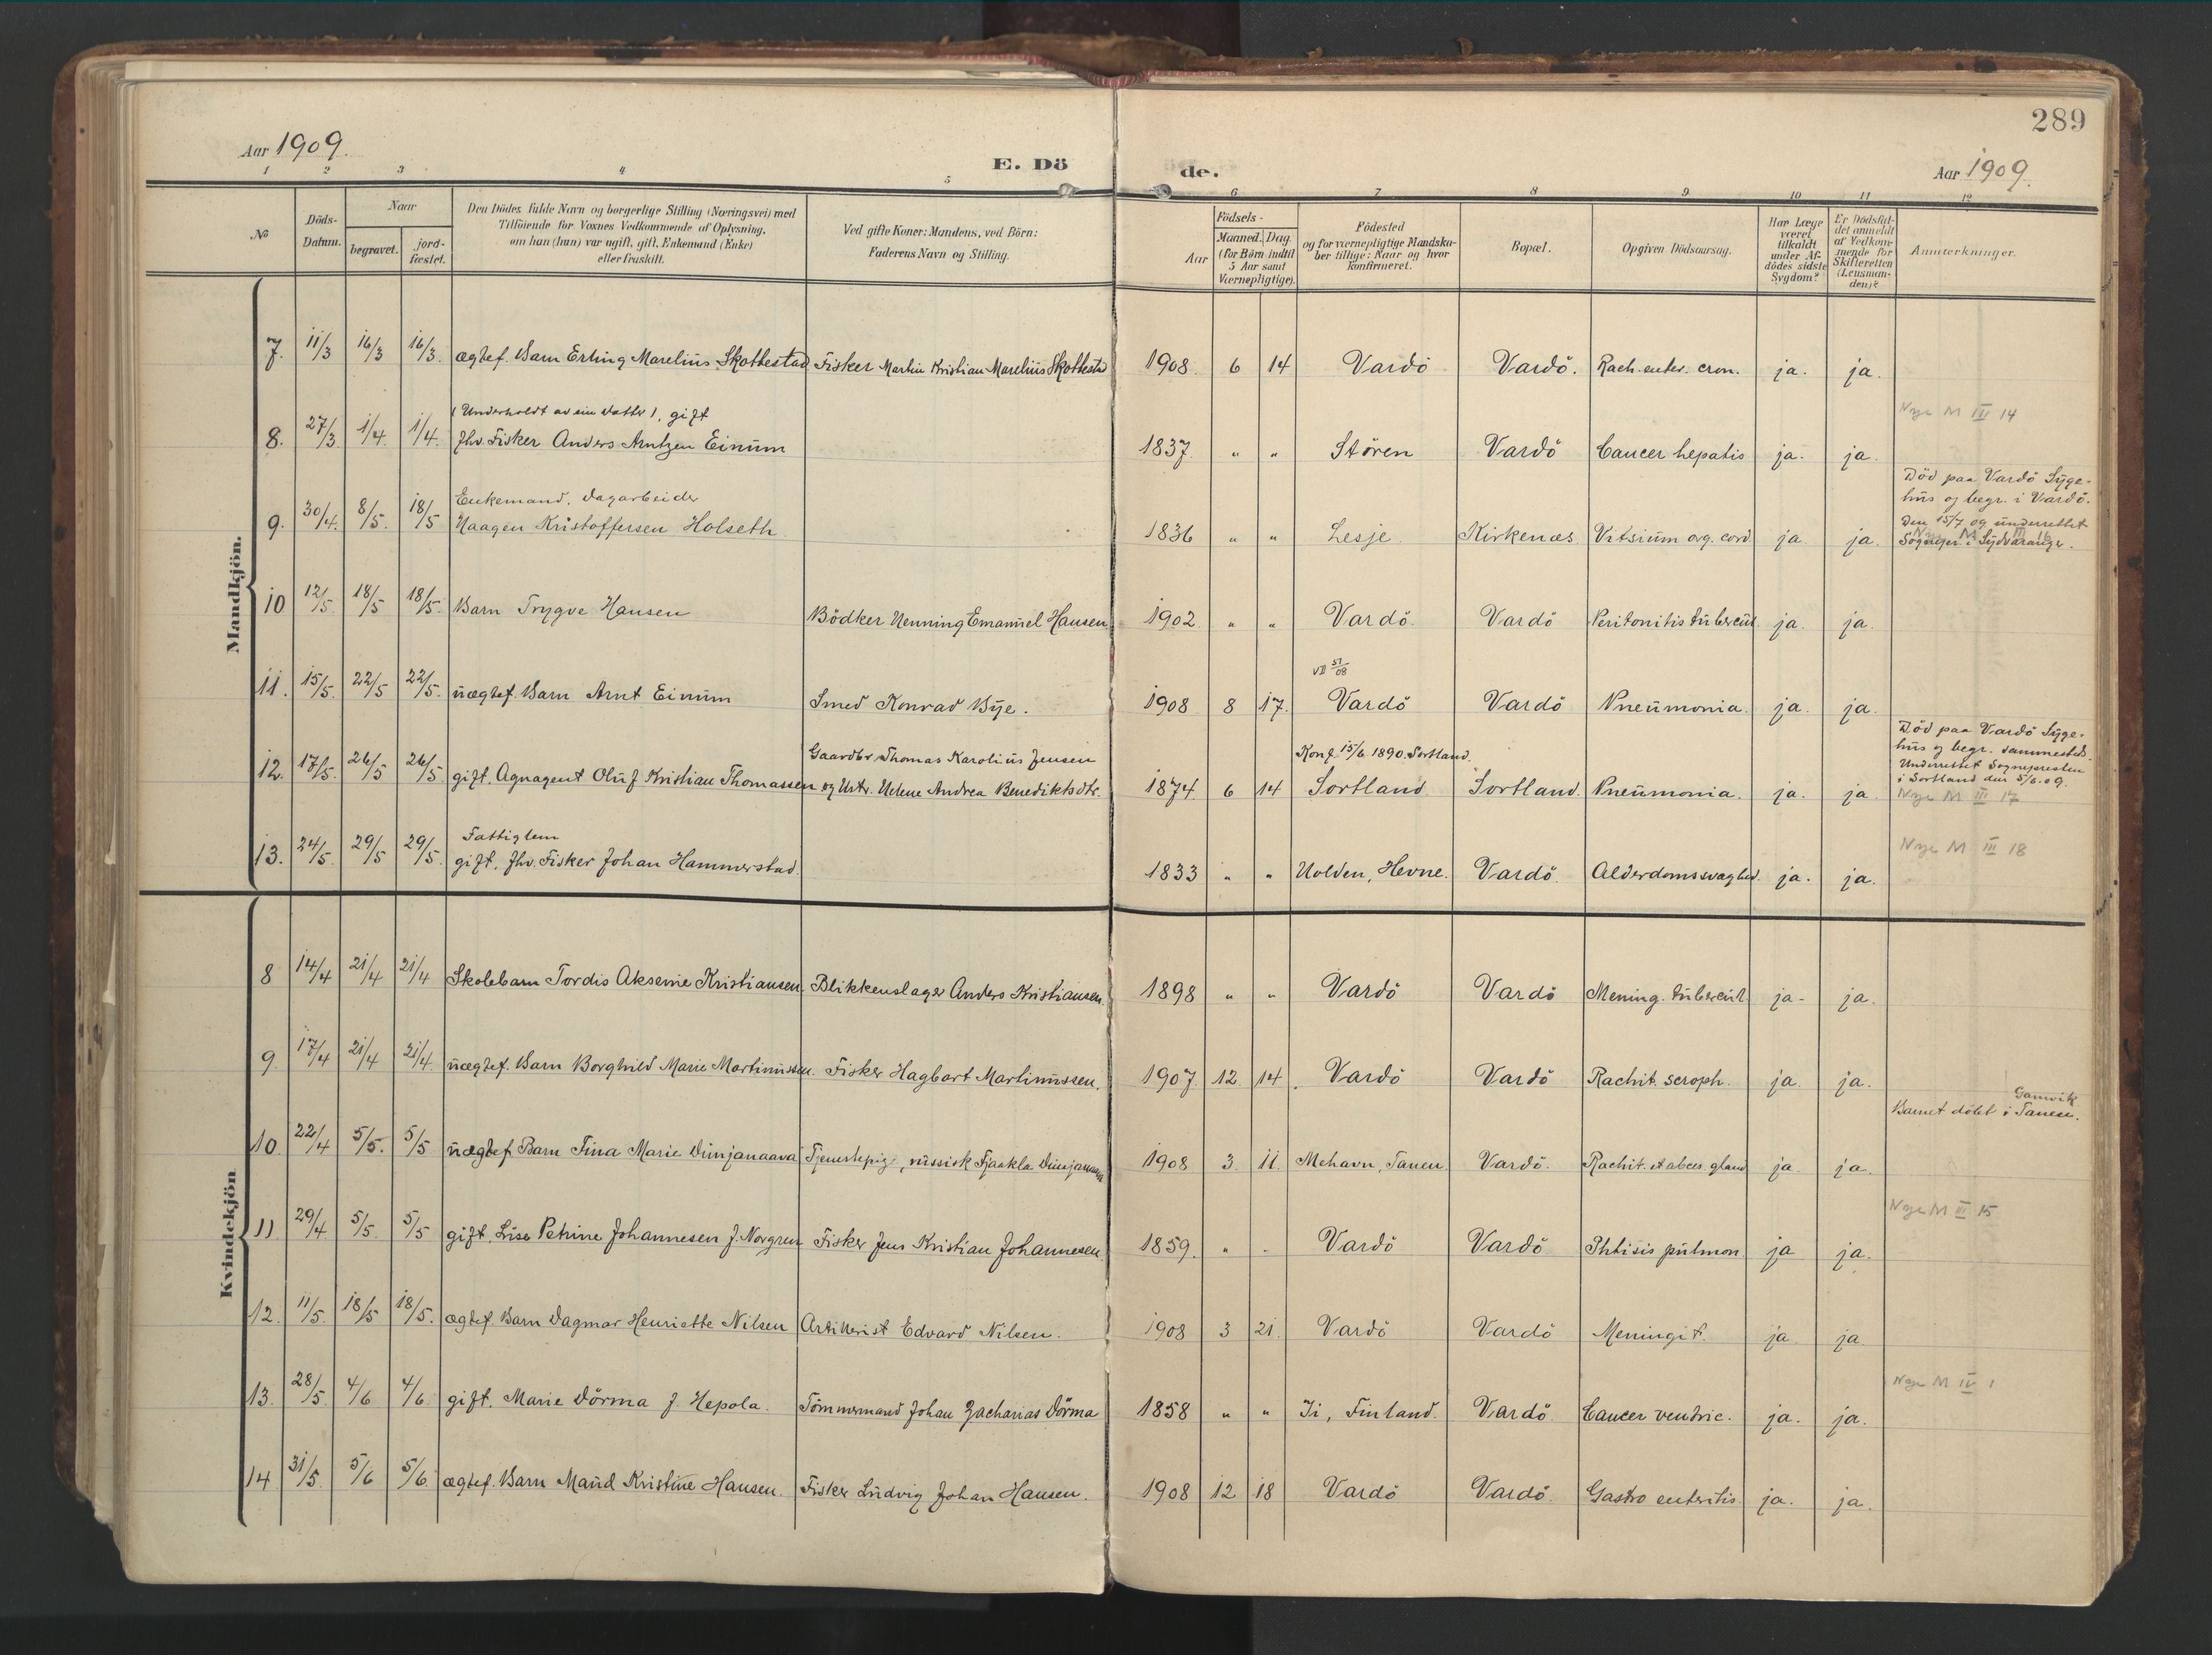 289
Aar 1909.
E. Dö
de.
Aar 1909.
1 2 3 4 5 6 7 8 9 10 11 12
№
Döds-Datum.
Naar
begravet.
jord-fæstet.
Den Dödes fulde Navn og borgerlige Stilling (Næringsvei) med
Tilföiende for Voxnes Vedkommende af Oplysning,
om han (hun) var ugift, gift, Enkemand (Enke)
eller fraskilt.
Ved gifte Koner: Mandens, ved Börn:
Faderens Navn og Stilling.
Födsels-
Aar
Maaned. Dag.
(for Börn indtil
5 Aar samt
Værnepligtige).
Födested
og for værnepligtige Mandska-
ber tillige: Naar og hvor
konfirmeret.
Bopæl.
Opgiven Dödsaarsag.
Har Læge
været
tilkaldt
under Af-
dödes sidste
Sygdom?
Er Dödsfal-
det anmeldt
af Vedkom-
mende for
Skifteretten
(Lensman-
den)?
Anmærkninger.
Mandkjön.
7. 11/3 16/3 16/3. ægtef. Barn Erling Marelius Skottestad Fisker Martin Kristian Marelius Skottestad 1908. 6 14 Vardö Vardö. Rach. enter. cron. ja. ja.
(Underholdt av sin Datter), gift
Nye M III 14
8. 27/3 1/4 1/4. fhv. Fisker Anders Arntzen Einum 1837. " " Stören Vardö Cancer hepatis ja. ja.
Enkemand. Dagarbeider
Död paa Vardö Syge-
hus og begr. i Vardö.
Den 15/7 09 underrettet
Sognepr. i Sydvaranger.
Nye M III 16
9. 30/4. 8/5. 18/5 Haagen Kristoffersen Holseth 1836 " " Lesje. Kirkenæs Vitsium org. cord ja ja.
10 12/5. 18/5 18/5. Barn Trygve Hansen Bödker Henning Emanuel Hansen. 1902. " " Vardö. Vardö Peritonitis tubercul. ja. ja.
VII 51/08
11. 15/5. 22/5 22/5. uægtef. Barn Arnt Einum Smed Konrad Bye. 1908 8 17. Vardö Vardö Pneumonia. ja. ja.
Gaardbr. Thomas Karolius Jensen
Konf. 15/6. 1890. Sortland.
Död paa Vardö Syge-
hus og begr. sammesteds.
Underrettet Sognepresten
i Sortland den 5/6. 09.
Nye M III 17
12. 17/5. 26/5 26/5. gift. Agnagent Oluf Kristian Thomassen og Hstr. Helene Andrea Benediktsdtr. 1874. 6 14 Sortland Sortland. Pneumonia. ja. ja.
Fattiglem
Nye M III 18
13. 24/5. 29/5 29/5. gift. fhv. Fisker Johan Hammerstad. 1833 " " Holden, Hevne. Vardö. Alderdomssvaghed. ja. ja.
Kvindekjön
8 14/4 21/4 21/4 Skolebarn Tordis Aksenie Kristiansen. Blikkenslager Anders Kristiansen. 1898 " " Vardö Vardö Mening. tubercul. ja. ja.
9. 17/4 21/4 21/4. uægtef. Barn Borghild Marie Martinussen. Fisker Hagbart Martinussen. 1907. 12. 14. Vardö Vardö Rachit. scroph. ja. ja.
Gamvik
Barnet döbt i Tanen.
10. 22/4 5/5. 5/5 uægtef. Barn Tina Marie Timjanaava Tjenestepige, russisk Fjaakla 1908 3. 11. Mehavn, Tanen. Vardö. Rachit. et absces. gland ja. ja.
Nye M III 15
11. 29/4 5/5. 5/5 gift. Lise Petrine Johannesen f. Norgren Fisker Jens Kristian Johannesen. 1859. " " Vardö Vardö Phtisis pulmon. ja ja.
12. 11/5. 18/5 18/5. ægtef. Barn Dagmar Henriette Nilsen Artillerist Edvard Nilsen. 1908 3 21. Vardö Vardö Meningit. ja. ja.
Nye M IV 1
13. 28/5. 4/6 4/6. gift. Marie Dörma f. Hepola. Tömmermand Johan Zacharias Dörma 1858 " " Ii, Finland. Vardö. Cancer ventric. ja. ja.
14 31/5. 5/6 5/6. ægtef. Barn Maud Kristine Hansen. Fisker Ludvig Johan Hansen. 1908 12 18 Vardö Vardö. Gastro enteritis. ja. ja.